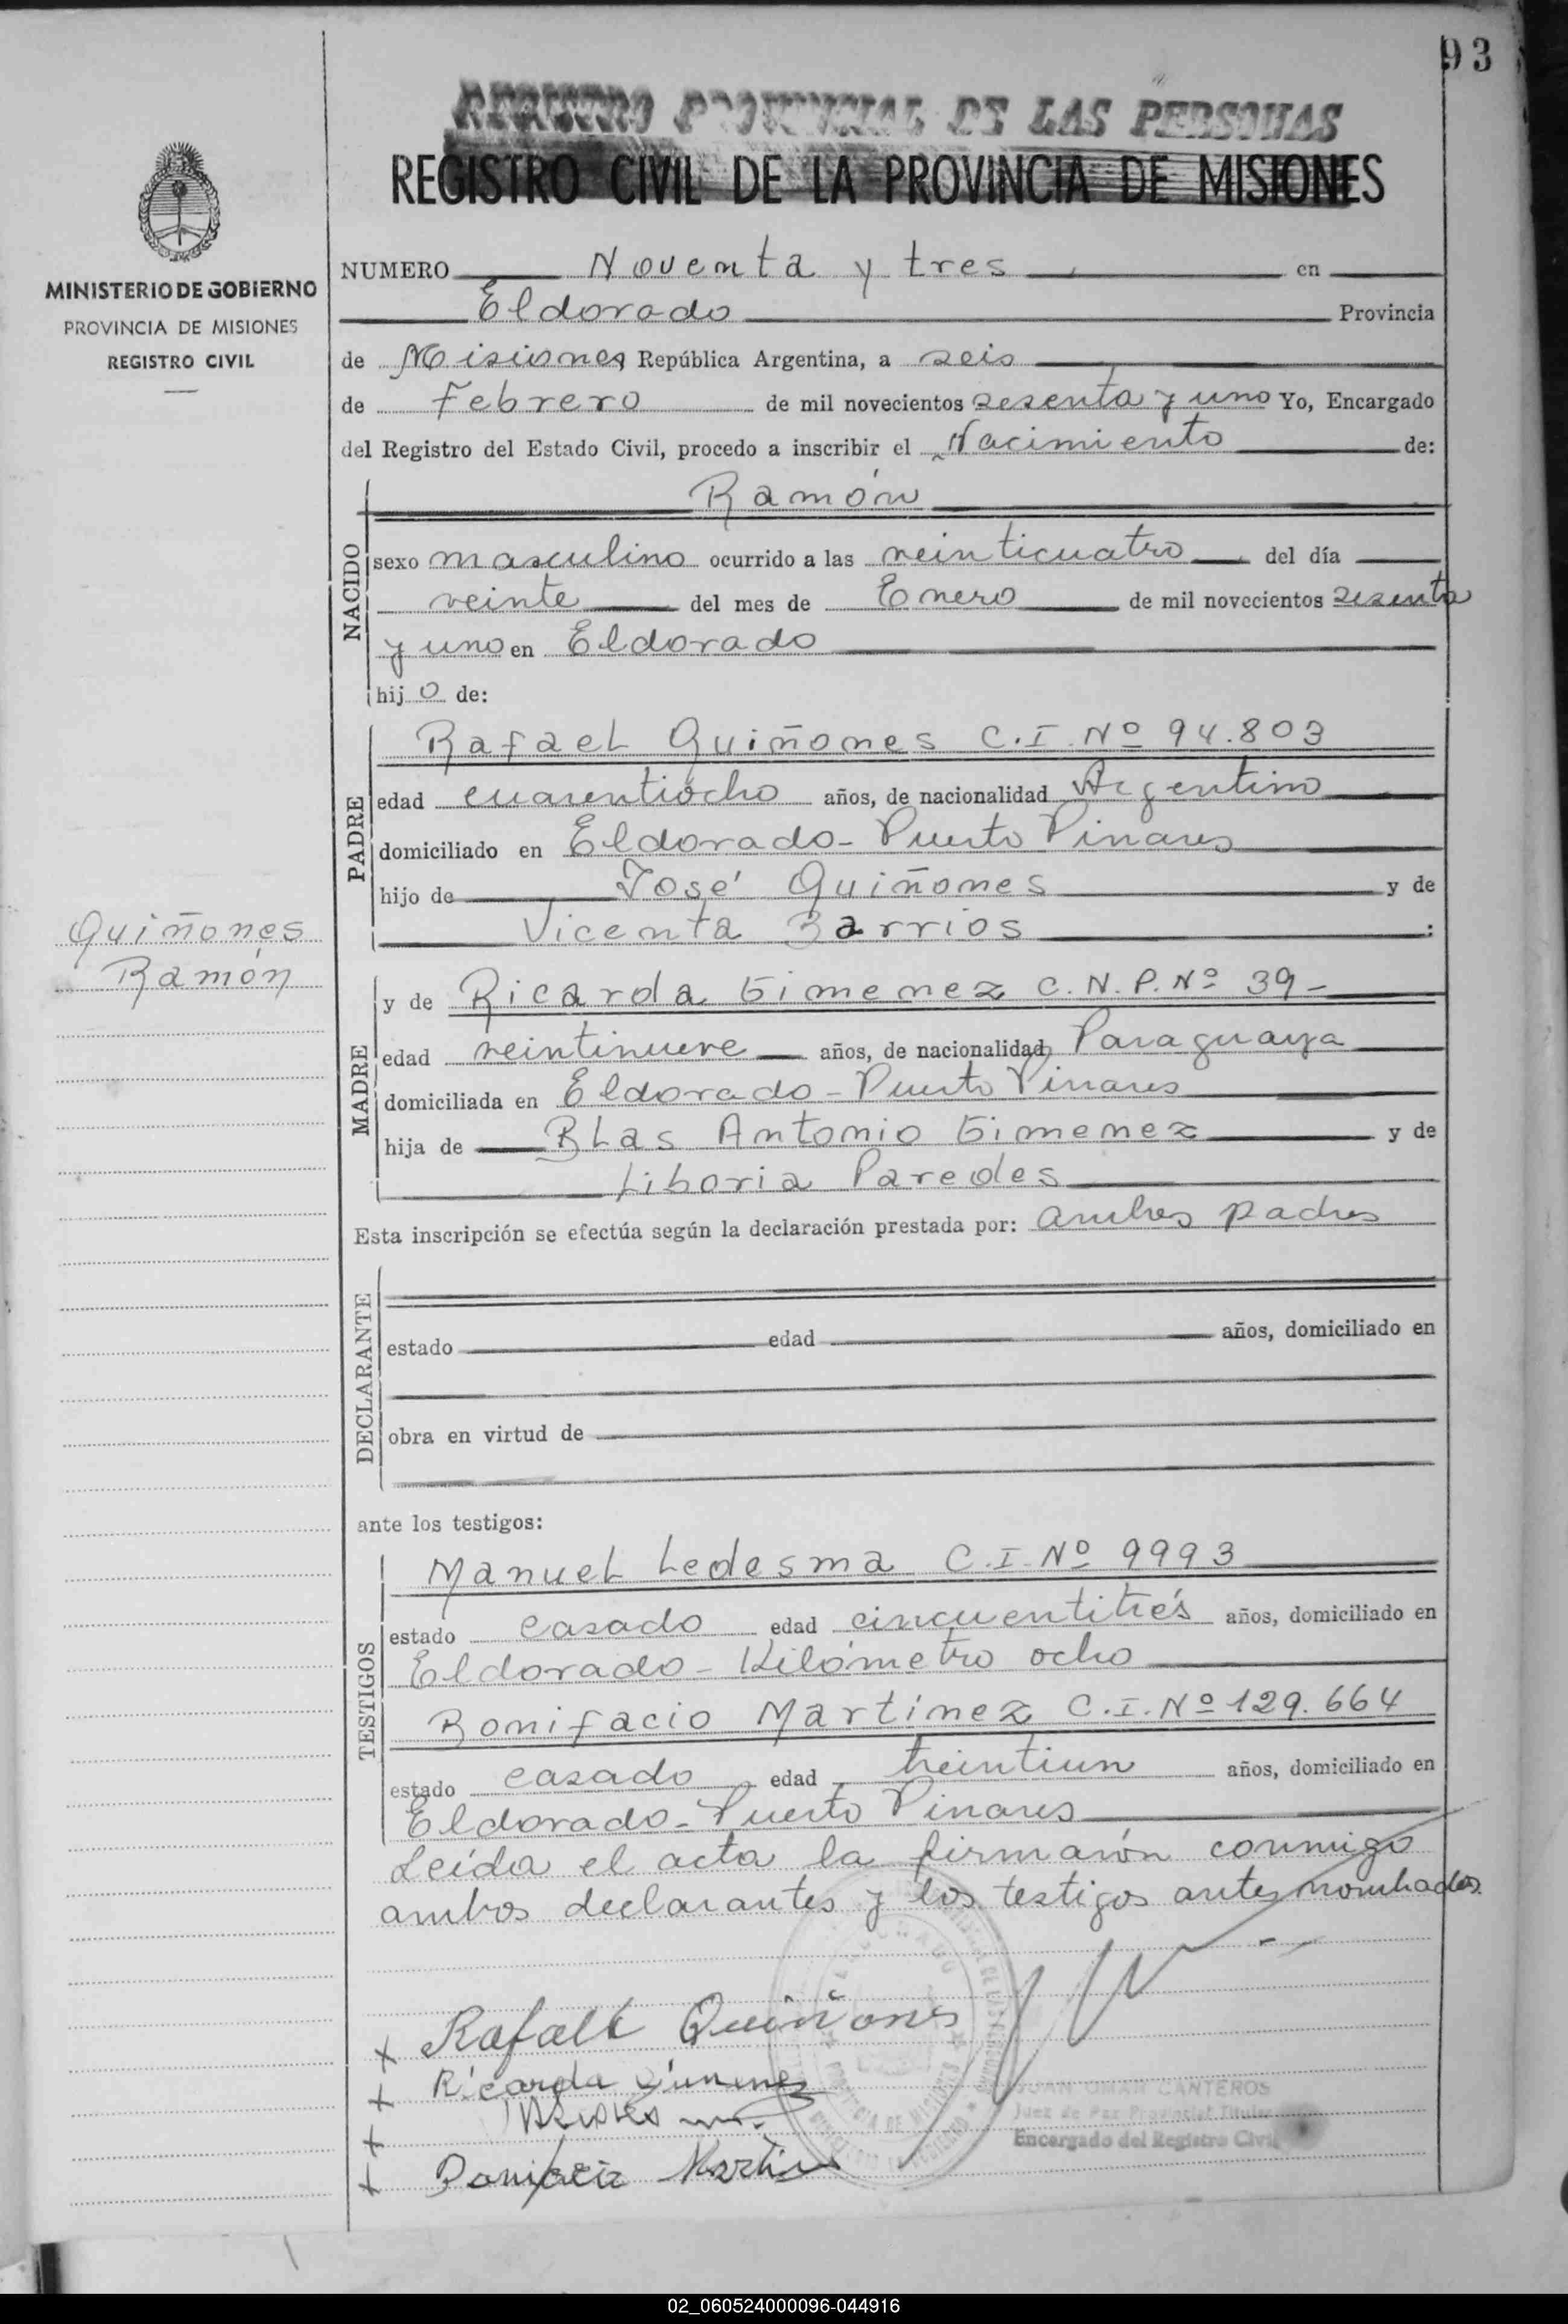 93
REGISTRO PROVINCIAL DE LAS PERSONAS
REGISTRO CIVIL DE LA PROVINCIA DE MISIONES
MINISTERIO DE GOBIERNO
PROVINCIA DE MISIONES
REGISTRO CIVIL
NUMERO Noventa y tres en
Eldorado Provincia
de Misiones República Argentina, a seis
de Febrero de mil novecientos sesenta y uno Yo, Encargado
del Registro del Estado Civil, procedo a inscribir el Nacimiento de:
NACIDO
Ramón
sexo masculino ocurrido a las veinticuatro del día
veinte del mes de Enero de mil novecientos sesenta
y uno en Eldorado
hijo de:
PADRE
Rafael Quiñones C.I. Nº 94.803
edad cuarentiocho años, de nacionalidad Argentino
domiciliado en Eldorado - Puerto Pinares
hijo de José Quiñones y de
Vicenta Barrios :
Quiñones
Ramón
MADRE
y de Ricarda Gimenez C.N.P. Nº 39-
edad veintinueve años, de nacionalidad Paraguaya
domiciliada en Eldorado - Puerto Pinares
hija de Blas Antonio Gimenez y de
Liboria Paredes
Esta inscripción se efectúa según la declaración prestada por: ambos padres
DECLARANTE
estado edad años, domiciliado en
obra en virtud de
ante los testigos:
TESTIGOS
Manuel Ledesma C.I. Nº 9993
estado casado edad cincuentitrés años, domiciliado en
Eldorado - Kilómetro ocho
Bonifacio Martínez C.I. Nº 129.664
estado casado edad treintiun años, domiciliado en
Eldorado - Puerto Pinares
Leída el acta la firmarón conmigo
ambos declarantes y los testigos antes nombrados.
x Rafael Quiñones
x Ricarda Jimenez
x
x Bonifacio Martin
JUAN OMAR CANTEROS
Juez de Paz Provincial Titular
Encargado del Registro Civil
02_060524000096-044916